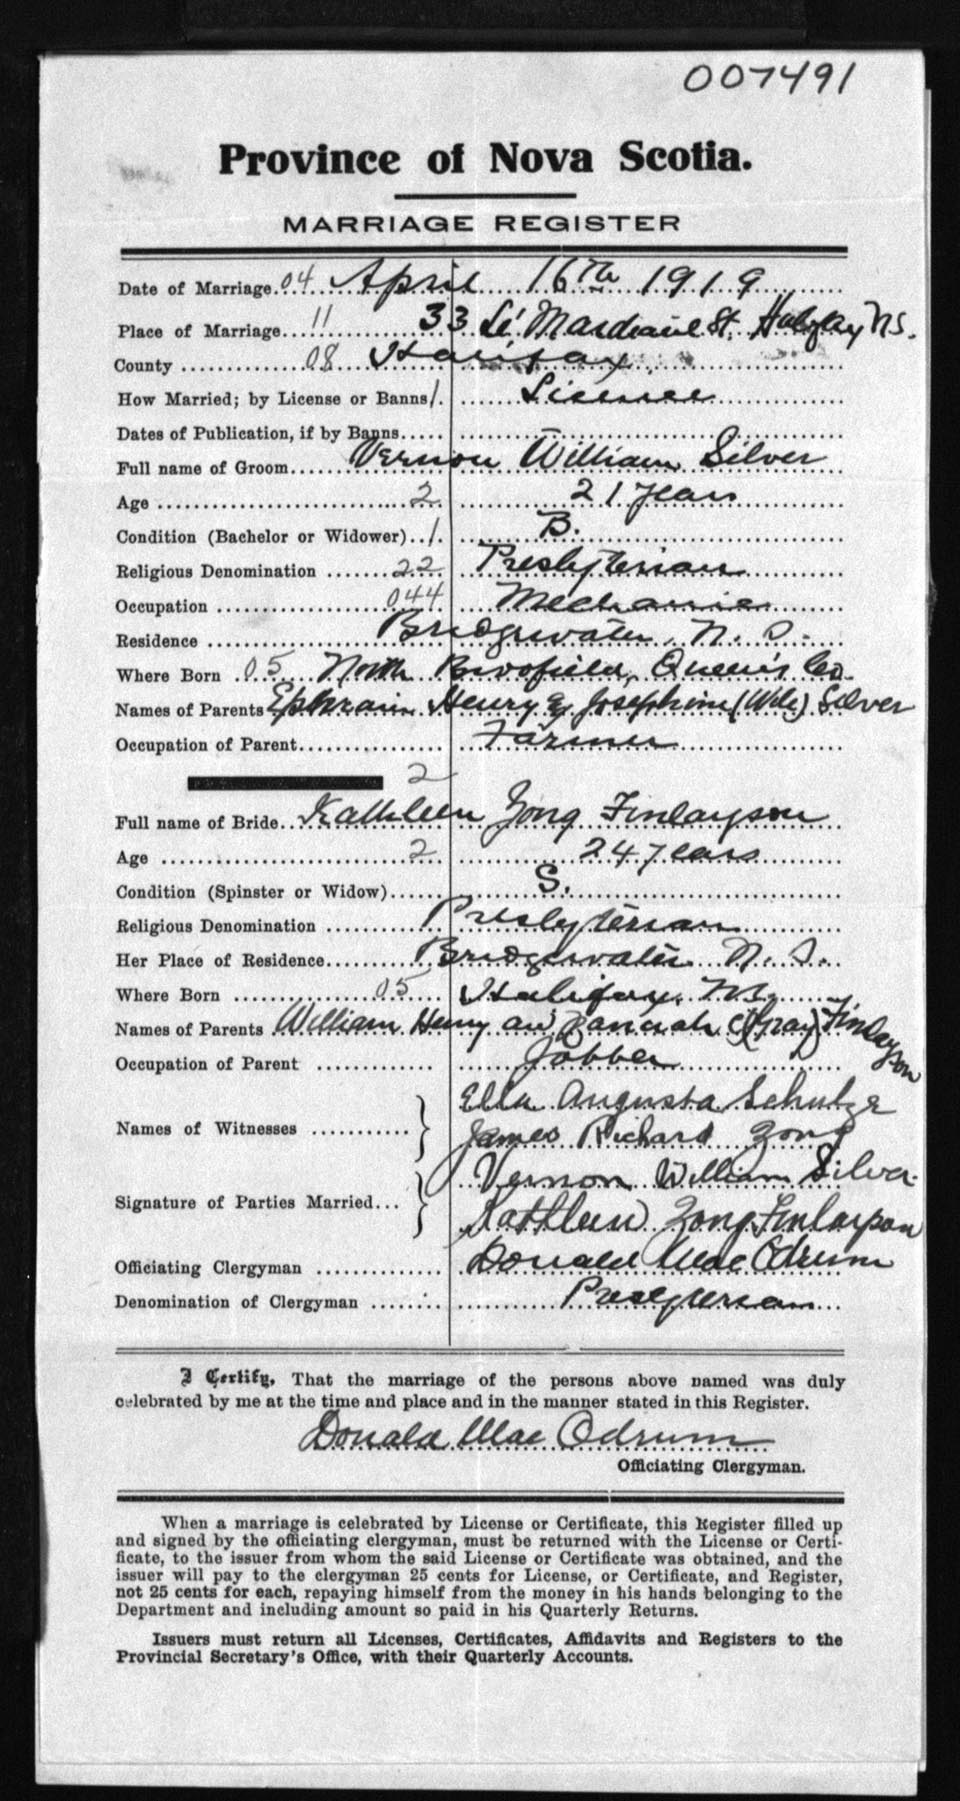 007491
Province of Nova Scotia.
MARRIAGE REGISTER
Date of Marriage 04 April 16th 1919
Place of Marriage 11 33 St. N.S.
County 08 Halifax
How Married; by License or Banns 1. License
Dates of Publication, if by Banns
Full name of Groom Vernon William Silver
Age 2 21 years
Condition (Bachelor or Widower) 1. B.
Religious Denomination 22 Presbyterian
Occupation 044 Mechanic
Residence Bridgewater, N. S.
Where Born 05 North Brookfield, Queen's Co.
Names of Parents Ephraim Henry & Josephine (Wile) Silver
Occupation of Parent Farmer
2
Full name of Bride Kathleen Zong Finlayson
Age 2 24 years
Condition (Spinster or Widow) S.
Religious Denomination Presbyterian
Her Place of Residence Bridgewater N. S.
Where Born 05 Halifax, N.S.
Names of Parents William Henry and (Gray) Finlayson
Occupation of Parent Jobber
Names of Witnesses Ella Augusta Schultze
James Richard Zong
Signature of Parties Married Vernon William Silver
Kathleen Zong Finlayson
Officiating Clergyman Donald Mac Odrum
Denomination of Clergyman Presbyterian
I Certify, That the marriage of the persons above named was duly
celebrated by me at the time and place and in the manner stated in this Register.
Donald Mac Odrum
Officiating Clergyman.
When a marriage is celebrated by License or Certificate, this Register filled up
and signed by the officiating clergyman, must be returned with the License or Certi-
ficate, to the issuer from whom the said License or Certificate was obtained, and the
issuer will pay to the clergyman 25 cents for License, or Certificate, and Register,
not 25 cents for each, repaying himself from the money in his hands belonging to the
Department and including amount so paid in his Quarterly Returns.
Issuers must return all Licenses, Certificates, Affidavits and Registers to the
Provincial Secretary's Office, with their Quarterly Accounts.